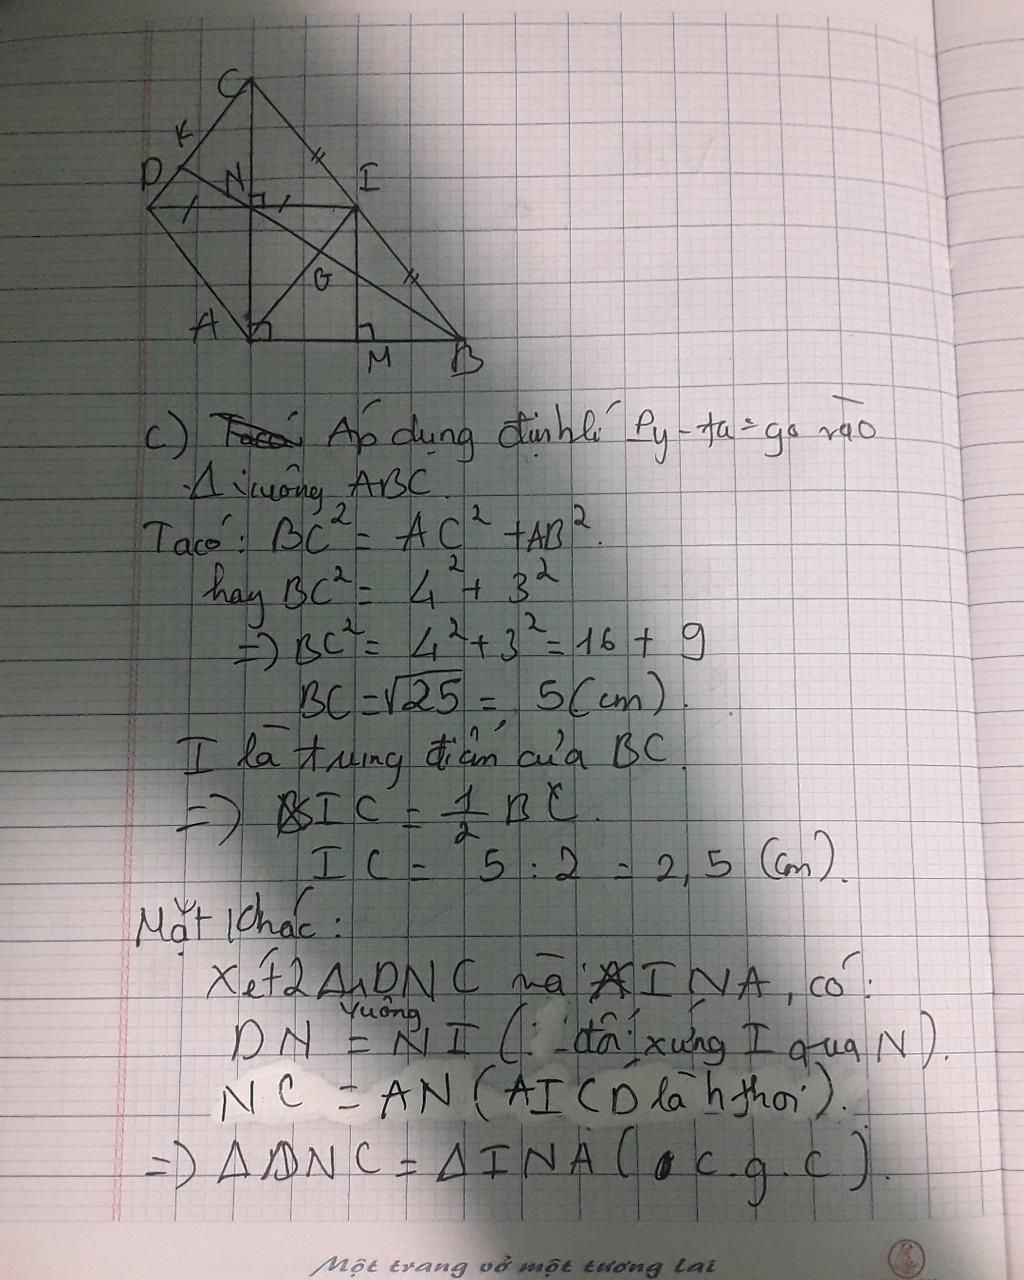 C
K
D
N
I
G
A
M
B
c) Áp dụng định lí Py-ta-go vào
Δ vuông ABC.
Ta có: BC² = AC² + AB².
hay BC² = 4² + 3²
=> BC² = 4² + 3² = 16 + 9
BC = √25 = 5 (cm).
I là trung điểm của BC.
=> IC = 1/2 BC.
IC = 5 : 2 = 2,5 (cm).
Mặt khác:
Xét 2 Δ vuông DNC và INA, có:
DN = NI (: đối xứng I qua N).
NC = AN (AICD là h thoi).
=> Δ DNC = Δ INA (c.g.c).
Một trang vở một tương lai